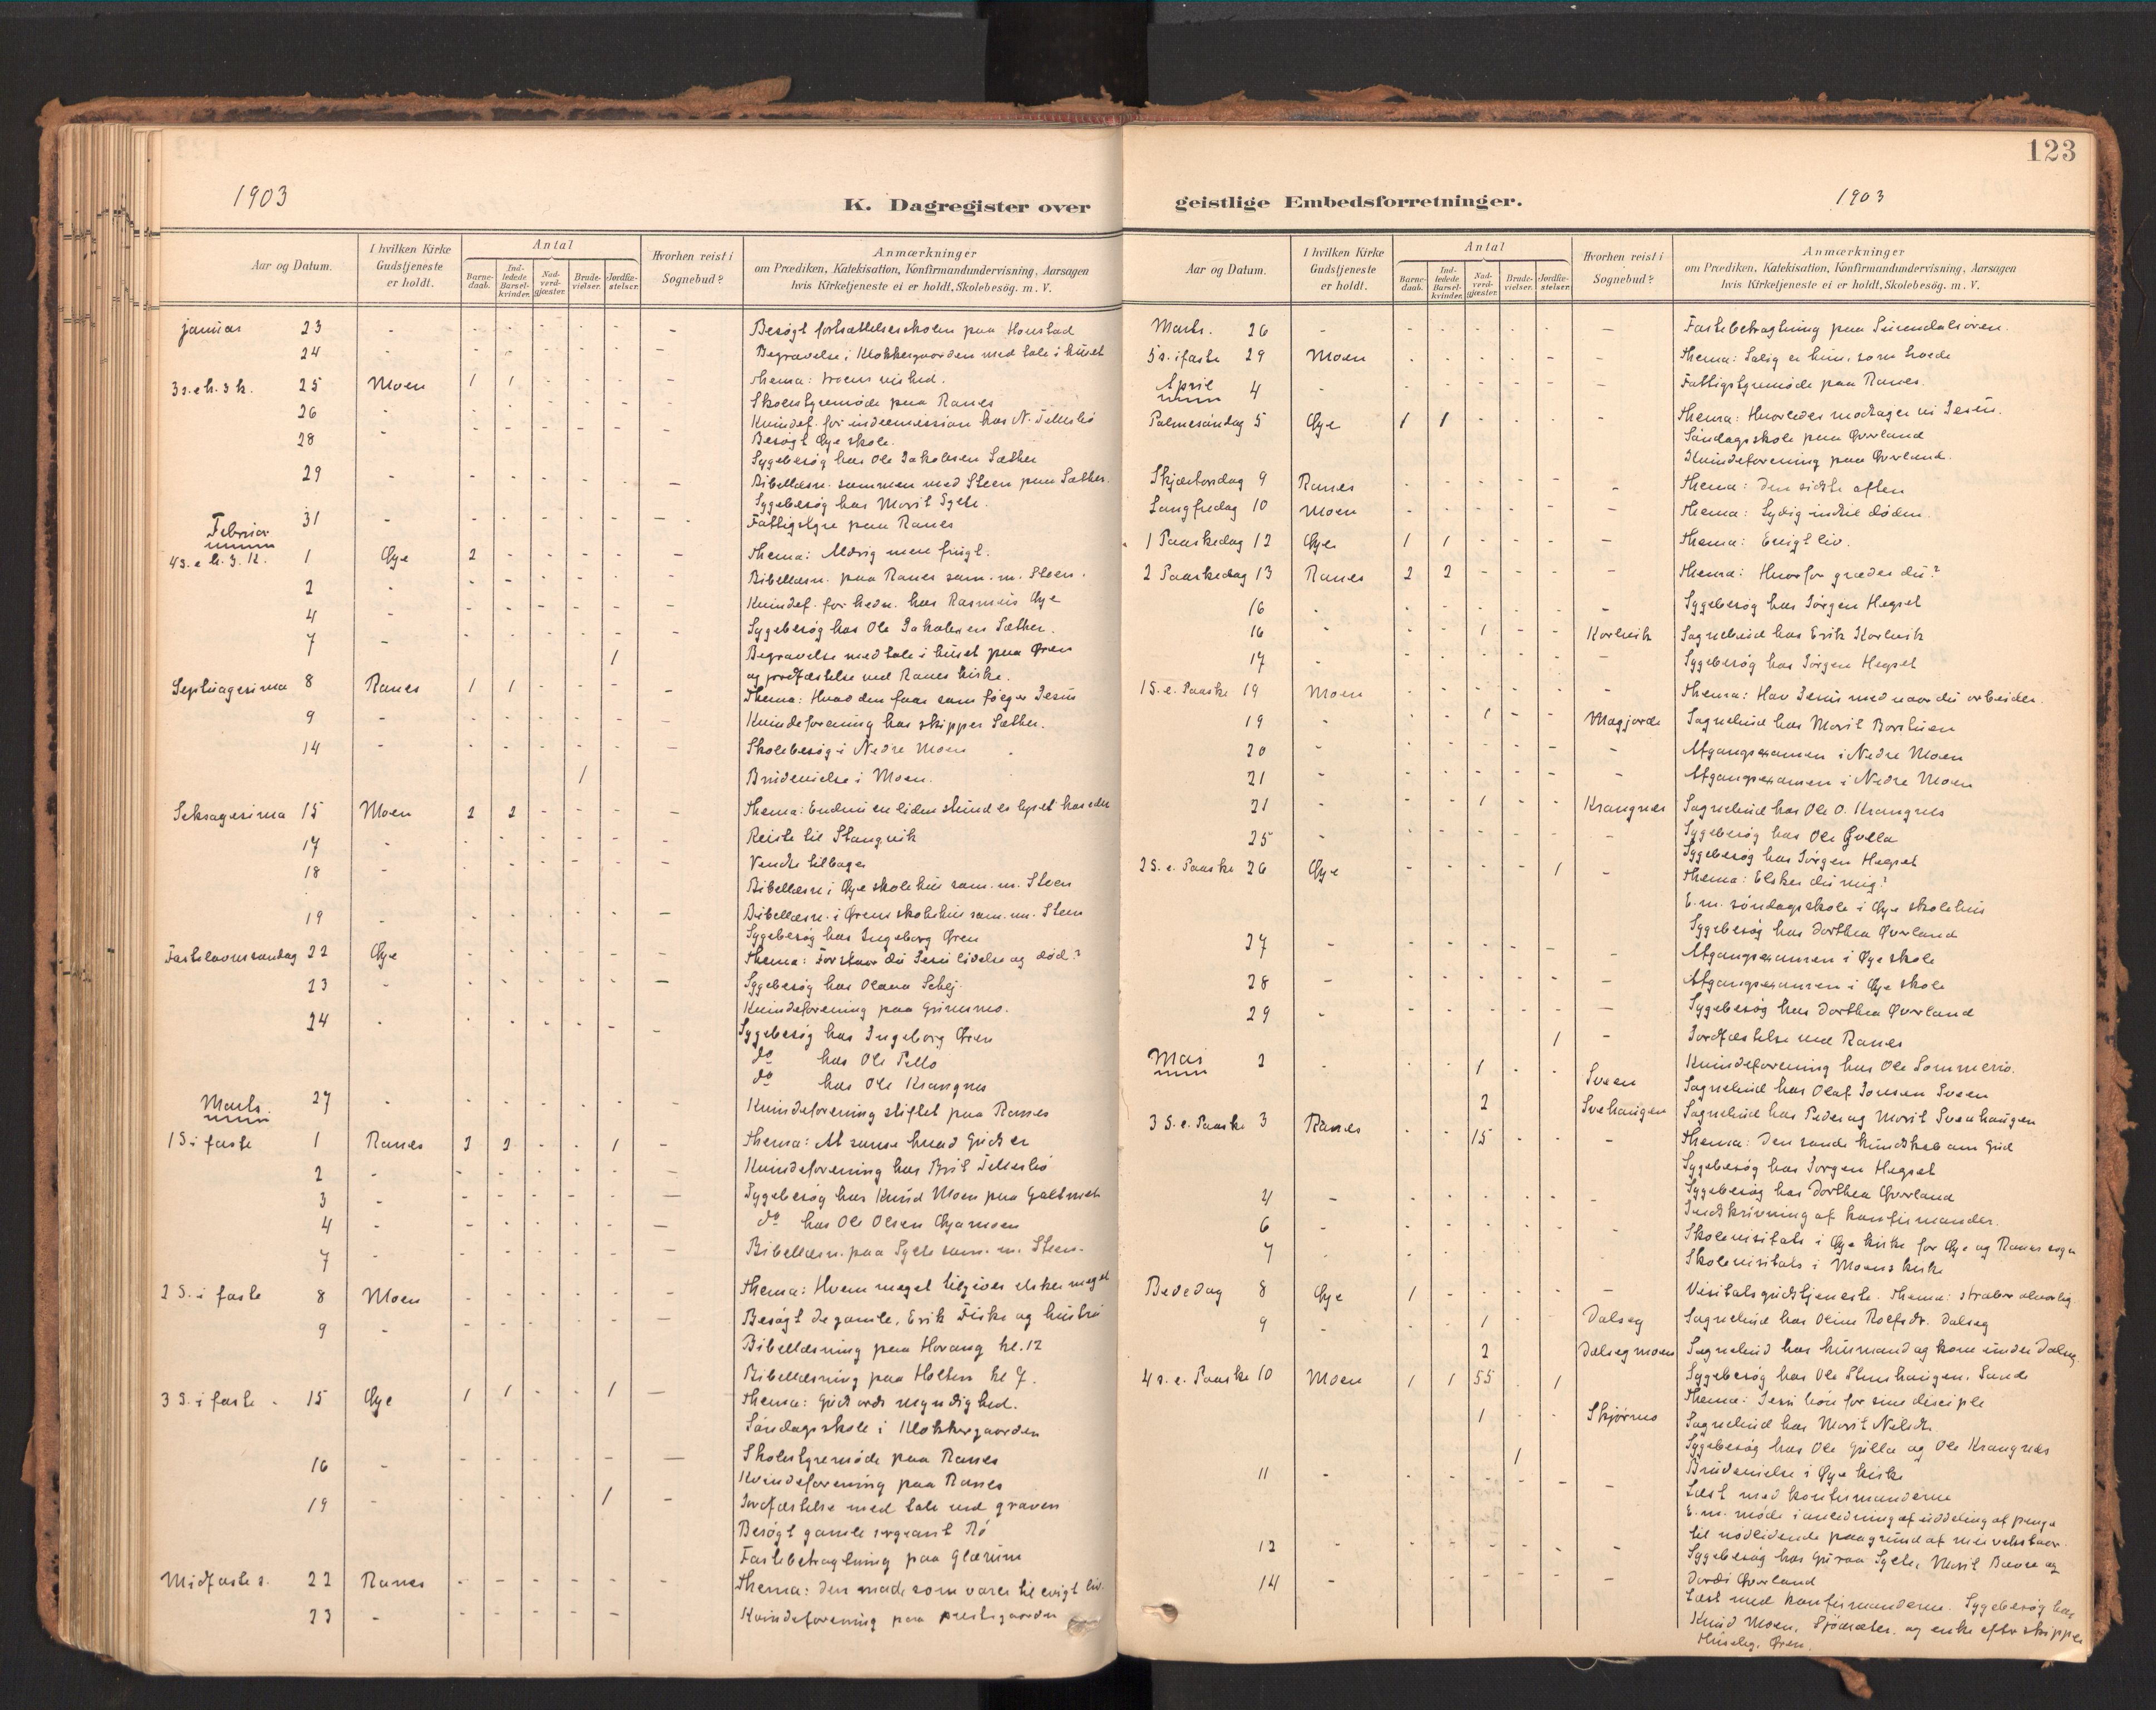 123
1903
1903
K. Dagregister over
geistlige Embedsforretninger.
Aar og Datum.
I hvilken Kirke Gudstjeneste er holdt.
Antal
Barnedaab.
Indledede Barselkvinder.
Nadverdgjæster.
Brudevielser.
Jordfæstelser.
Hvorhen reist i Sognebud?
Anmærkninger
om Prædiken, Katekisation, Konfirmandundervisning, Aarsagen
hvis Kirketjeneste ei er holdt, Skolebesög. m. V.
januar 23 - Besøgt fortsættelsesskolen paa Honstad
24 Begravelse i Klokkergaarden med tale i huset
3 s. e. h. 3 k. 25 Moen 1 1 Thema: troens vished.
Skolestyremøde paa Ranes
26 Kvindef. for indremission hos N. Telleslió
28 Besøgt Øye skole.
Sygebesøg hos Ole Jakobsen Sæther
29 Bibellæsn. sammen med Steen paa Sæther.
Sygebesøg hos Marit Sylte.
31 Fattigstyre paa Ranes
Februar
4 s. e. h. 3. K. 1 Øye 2 Thema: men frugt.
2 Bibellæsn. paa Ranes sam. m. Steen.
4 Kvindef. for hedn. hos Rasmus Øye
7 Sygebesøg hos Ole Jakobsen Sæther.
1 Begravelse med tale i huset paa Øren
og jordfæstelse ved Ranes kirke.
Septuagesima 8 Ranes 1 1 Thema: Hvad den faar som følger Jesus
9 Kvindeforening hos skipper Sæther.
14 Skolebesøg i Nedre Moen
1 Brudevielse i Moen.
Seksagesima 15 Moen 2 2 Thema: Endnu en liden stund er lyset hos eder
17 Reiste til Stangvik
18 Vendte tilbage
Bibellæsn i Øye skolehus sam. m. Steen
19 Bibellæsn. i Ørens skolehus sam. m. Steen
Sygebesøg hos Ingeborg Øren
Fastelavnssøndag 22 Øye Thema: Forstaar du Jesu lidelse og død?
23 Sygebesøg hos Olava
Kvindeforening paa Grimsmo.
24 Sygebesøg hos Ingeborg Øren
do hos Ole
do hos Ole Krangnes
27 Kvindeforening stiftet paa Ranes
Marts.
1 S. i faste 1 Ranes 2 2 1 Thema: At sanse hvad Guds er
2 Kvindeforening hos Brit Telleslió
3 Sygebesøg hos Knud Moen paa
4 do hos Ole Olsen Øyamoen
7 Bibellæsn. paa Sylte sam. m. Steen.
2 S. i faste 8 Moen Thema: Hvem meget tilgives elsker meget
9 Besøgt de gamle, Erik Fiske og hustru
Bibellæsning paa Hovang kl. 12
Bibellæsning paa Holten kl 7.
3 S. i faste 15 Øye 1 1 1 Thema: Guds ords myndighed.
Søndagsskole i Klokkergaarden
16 Skolestyremøde paa Ranes
Kvindeforening paa Ranes
19 1 Jordfæstelse med tale ved graven
Besøgt gamle sergeant Bø
Fastebetragtning paa Glærum
Midfastes. 22 Ranes Thema: Den mad, som varer til evigt liv.
23 Kvindeforening paa prestegaarden
Marts. 26 Fastebetragtning paa Surendalsøren.
5 s. i faste 29 Moen Thema: Salig er hun, som troede
April 4 Fattigstyremøde paa Ranes.
Palmesøndag 5 Øye 1 1 Thema: Hvorledes modtager vi Jesus.
Søndagsskole paa Øverland
Kvindeforening paa Øverland.
Skjærtorsdag 9 Ranes Thema: Den sidste aften
Langfredag 10 Moen Thema: Lydig indtil døden.
1 Paaskedag 12 Øye 1 1 Thema: Evigt liv.
2 Paaskedag 13 Ranes 2 2 Thema: Hvorfor græder du?
16 Sygebesøg hos Jørgen Hegset
16 1 Korsvik Sognebud hos Erik Korsvik
17 Sygebesøg hos Jørgen Hegset
1 S. e. Paaske 19 Moen Thema: Hav Jesus med naar du arbeider.
19 1 Mogjorde Sognebud hos Marit
20 Afgangsexamen i Nedre Moen
21 Afgangsexamen i Nedre Moen
21 1 Krangnes Sognebud hos Ole O. Krangnes
25 Sygebesøg hos Ole Gulla
Sygebesøg hos Jørgen Hegset
2 S. e. Paaske 26 Øye 1 Thema: Elsker du mig?
E.m. søndagsskole i Øye skolehus
Sygebesøg hos Dorthea Øverland
27 Afgangsexamen i Øye skole
28 Afgangsexamen i Øye skole
29 Sygebesøg hos Dorthea Øverland
1 Jordfæstelse ved Ranes
Mai 2 Kvindeforening hos Ole Sommerró.
1 Sveen Sognebud hos Olaf Jonsen Sveen
2 Svehaugen Sognebud hos Peder og Marit Sveahaugen
3 S. e. Paaske 3 Ranes 15 Thema: Den sande kundskab om Gud
Sygebesøg hos Jørgen Hegset
Sygebesøg hos Dorthea Øverland
4 Indskrivning af konfirmander.
6 Skolevisitats i Øye kirke for Øye og Ranes sogn
7 Skolevisitats i Moens kirke
Bededag 8 Øye 1 Visitatsgudstjeneste. Thema: stræber alvorlig
9 1 Dalseg Sognebud hos Oline Rolfsdr. Dalseg
2 Dalsegmoen Sognebud hos husmand og kone under Dalseg
4 s. e. Paaske 10 Moen 1 1 55 1 Sygebesøg hos Ole Stenhaugen, Sande
Thema: Jesu bøn for sine disciple
1 Skjørmo Sognebud hos Marit Nilsdtr.
Sygebesøg hos Ole Gulla og Ole Krangnes
1 Brudevielse i Øye kirke
11 Læst med konfirmanderne
E.m. møde i anledning af uddeling af penge
til nødlidende paagrund af misvekstaar.
12 Sygebesøg hos Guroa Sylte, Marit Bævre og
Dordi Øverland
14 Læst med konfirmanderne. Sygebesøg hos
Knud Moen, Sjøasæter, og enke efter skipper
Huseby, Øren.